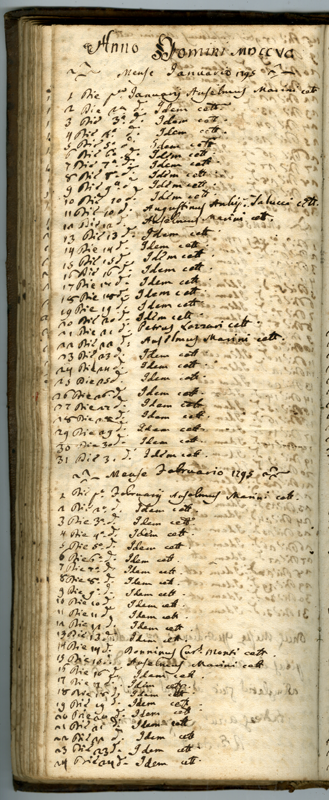 Anno Domini MDCCVC
Mense Januario 1795
1 Die pª Januarij Anselmus Marini cott.
2 Die 2ª d. Idem cott.
3 Die 3ª d. Idem cott.
4 Die 4ª d. Idem cott.
5 Die 5ª d. Idem cott.
6 Die 6ª d. Idem cott.
7 Die 7ª d. Idem cott.
8 Die 8ª d. Idem cott.
9 Die 9ª d. Idem cott.
10 Die 10 d. Idem cott.
11 Die 11 d. Augustinus cott.
12 Die 12 d. Anselmus Marini cott.
13 Die 13 d. Idem cott.
14 Die 14 d. Idem cott.
15 Die 15 d. Idem cott.
16 Die 16 d. Idem cott.
17 Die 17 d. Idem cott.
18 Die 18 d. Idem cott.
19 Die 19 d. Idem cott.
20 Die 20 d. Idem cott.
21 Die 21 d. Petrus Lazzari cott.
22 Die 22 d. Anselmus Marini cott.
23 Die 23 d. Idem cott.
24 Die 24 d. Idem cott.
25 Die 25 d. Idem cott.
26 Die 26 d. Idem cott.
27 Die 27 d. Idem cott.
28 Die 28 d. Idem cott.
29 Die 29 d. Idem cott.
30 Die 30 d. Idem cott.
31 Die 31 d. Idem cott.
Mense Februario 1795
1 Die pª Februarij Anselmus Marini cott.
2 Die 2ª d. Idem cott.
3 Die 3ª d. Idem cott.
4 Die 4ª d. Idem cott.
5 Die 5ª d. Idem cott.
6 Die 6ª d. Idem cott.
7 Die 7ª d. Idem cott.
8 Die 8ª d. Idem cott.
9 Die 9ª d. Idem cott.
10 Die 10 d. Idem cott.
11 Die 11 d. Idem cott.
12 Die 12 d. Idem cott.
13 Die 13 d. Idem cott.
14 Die 14 d. Monti cott.
15 Die 15 d. Anselmus Marini cott.
16 Die 16 d. Idem cott.
17 Die 17 d. Idem cott.
18 Die 18 d. Idem cott.
19 Die 19 d. Idem cott.
20 Die 20 d. Idem cott.
21 Die 21 d. Idem cott.
22 Die 22 d. Idem cott.
23 Die 23 d. Idem cott.
24 Die 24 d. Idem cott.